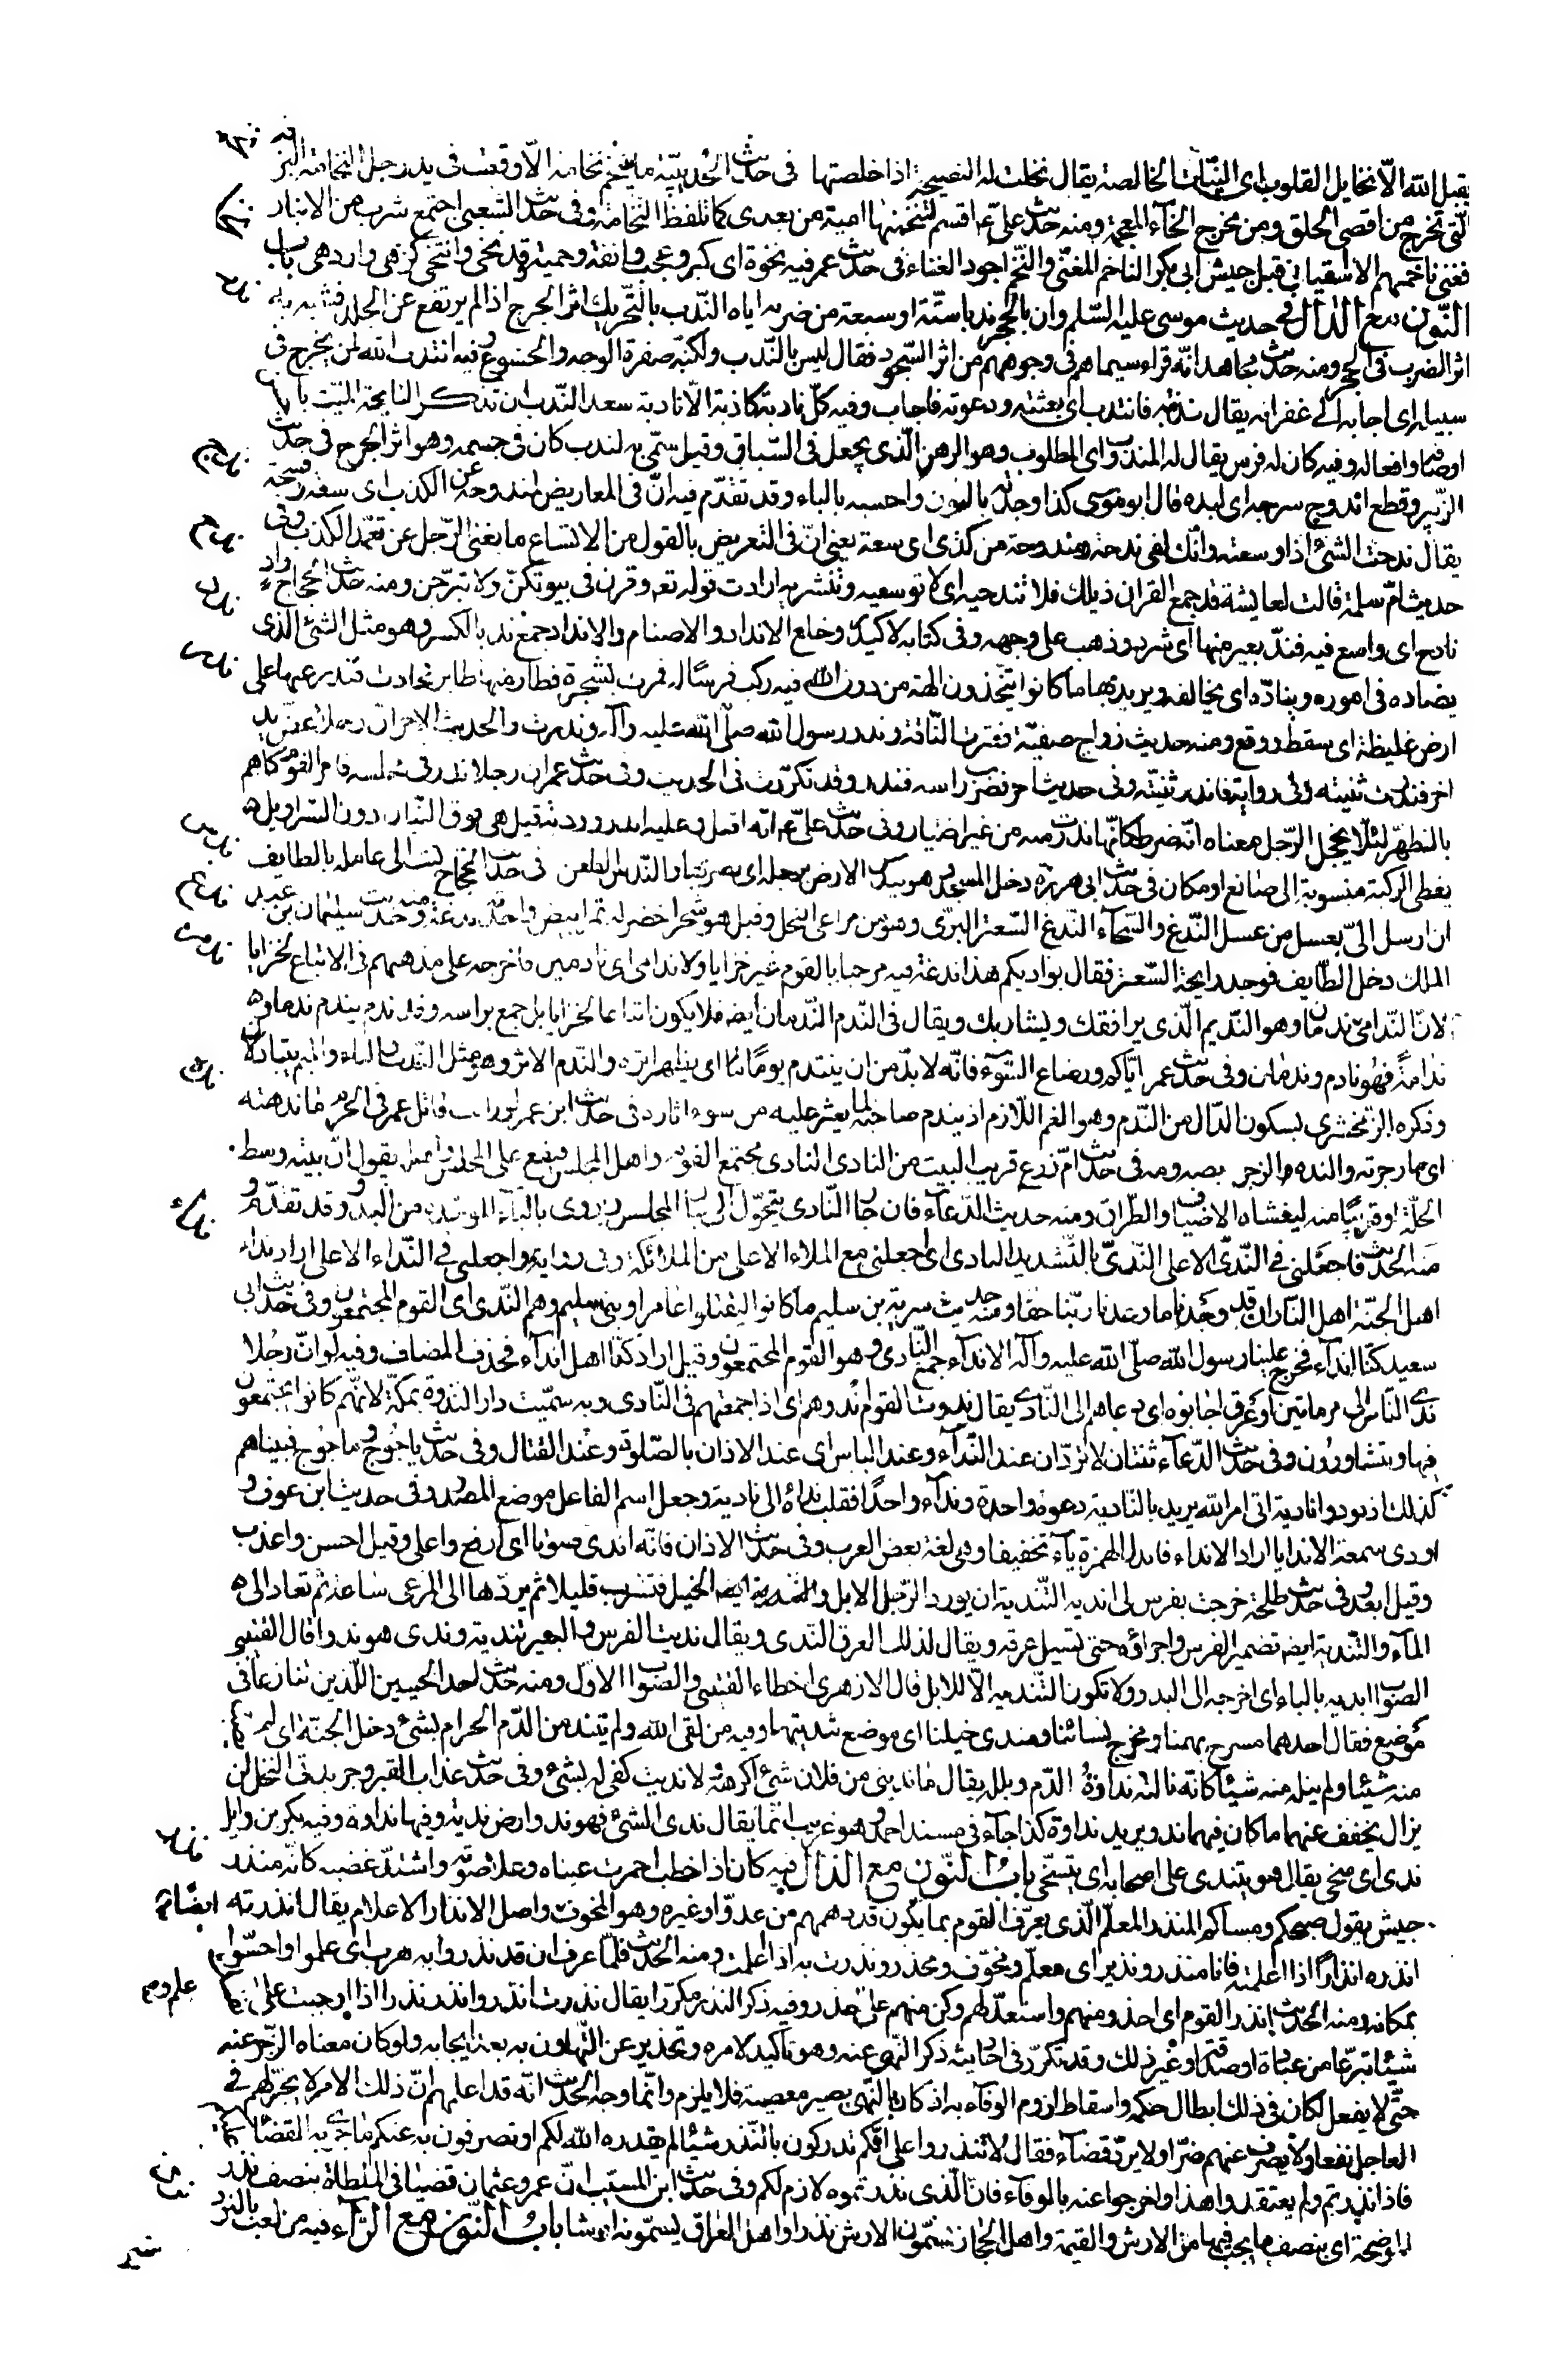 يقبل الله الّا نخايل القلوب اى النيّات الخالصة يقال نخلت له النصيحة اذا خلصتها فى حديث الحديبيّة ما يتنخّم نخامة الّا وقعت فى يد رجل النخامة البز
الّتى تخرج من اقصى الحلق ومن مخرج الخآء المعجمة ومنه حديث علىّ ع اقسم لتنخمنها اميّة من بعدى كما تلفظ النخامة وفى حديث الشعبى اجتمع شرب من الانبار
فغنى ناخمهم الا سقيانى قبل جيش ابى بكر الناخم المغنّى والنخم اجود الغناء فى حديث عمر فيه نخوة اى كبر وعجب وانفة وحمية وقد نخى وانتخى كزهى وازدهى باب
النّون مع الدال فى حديث موسى عليه السّلم وان بالحجر ندبا ستّة او سبعة من ضربه اياه النّدب بالتّحريك اثر الجرح اذا لم يرتفع عن الجلد فشبه به
اثر الضرب فى الحجر ومنه حديث مجاهد انّه قراء سيماهم فى وجوههم من اثر السّجود فقال ليس بالنّدب ولكنّه صفرة الوجه والخشوع وفيه انتدب الله لمن يخرج فى
سبيله اى اجابه الى غفرانه يقال ندبته فانتدب اى بعثته ودعوته فاجاب وفيه كلّ نادبة كاذبة الّا نادبة سعد النّدب ان تذكر النايحة الميّت باحسن
اوصافه وافعاله وفيه كان له فرس يقال له المندوب اى المطلوب وهو الرهن الّذى يجعل فى السّباق وقيل سمّى به لندب كان فى جسمه وهو اثر الجرح فى حديث
الزّبير وقطع اندوج سرجه اى لبده قال ابو موسى كذا وجدته بالنون واحسبه بالباء وقد تقدّم فيه انّ فى المعاريض لمندوحة عن الكذب اى سعة وفسحة
يقال ندحت الشئ اذا وسعته وانّك لفى ندحة ومندوحة من كذى اى سعة يعنى انّ فى التعريض بالقول من الاتساع ما يغنى الرّجل عن تعمّد الكذب وفى
حديث امّ سلمة قالت لعايشة قد جمع القران ذيلك فلا تندحيه اى لا توسعيه وتنشريه ارادت قوله تع وقرن فى بيوتكنّ ولا تبرّجن ومنه حديث الحجاج واد
نادح اى واسع فيه فندّ بعير منها اى شرد وذهب على وجهه وفى كتابه لاكيدر وخلع الانداد والاصنام والانداد جمع ند بالكسر وهو مثل الشئ الذى
يضاده فى اموره وينادّه اى يخالفه ويريد بها ما كانوا يتخذون الهة من دون الله فيه ركب فرسًا له فمرت بشجرة فطار منها طاير فحادت فندر عنها على
ارض غليظة اى سقط ووقع ومنه حديث زواج صفيّة فعثرت النّاقة وندر رسول الله صلّى الله عليه وآله وندرت والحديث الاخر انّ رجلا عضّ يد
اخر فندرت ثنيته وفى رواية فاندر ثنيّته وفى حديث اخر فضرب راسه فندر وقد تكرّرت فى الحديث وفى حديث عمر ان رجلا ندر فى مجلسه فامر القوم كلهم
بالتطهّر لئلّا يخجل الرّجل معناه انّه ضرط كانّها ندرت منه من غير اختيار وفى حديث علىّ ع انّه اقبل وعليه اندرورديّة قيل هى فوق التبان دون السراويل
يغطى الركبة منسوبة الى صانع او مكان فى حديث ابى هريرة دخل المسجد وهو يندس الارض برجله اى يضرب بها والنّدس الطعن فى حديث الحجّاج كتب الى عامله بالطايف
ان ارسل الىّ بعسل من عسل النّدغ والسّحآء النّدغ السّعتر البرّى وهو من مراعى النحل وقيل هو شجر اخضر له ثمر ابيض واحدته ندغة ومنه حديث سليمان بن عبد
الملك دخل الطّايف فوجد رايحة السّعتر فقال بواديكم هذا ندغة فيه مرحبا بالقوم غير خزايا ولا ندامى اى نادمين فاخرجه على مذهبهم فى الاتباع لخزايا
لانّ النّدامى ندمان وهو النّديم الّذى يرافقك ويشاربك ويقال فى النّدم النّدمان ايضا فلا يكون اتباعا لخزايا بل جمع براسه وقد ندم يندم ندما و
ندامةً فهو نادم وندمان وفى حديث عمر ايّاكم ورضاع السّوء فانّه لا بدّ من ان ينتدم يومًا ما اى يظهر اثره والنّدم الاثر وهو مثل النّدب والباء والميم يتبادلان
وذكره الزّمخشرى بسكون الدّال من النّدم وهو الغم اللّازم اذ يندم صاحبه لما يعثر عليه من سوء اثاره فى حديث ابن عمر لو رايت قاتل عمر فى الحرم ما ندهته
اى ما زجرته والنده الزجر بصه ومه فى حديث امّ زرع قريب البيت من النادى النادى مجتمع القوم واهل المجلس فيقع على المجلس واهله يقول انّ بيته وسط
الحلّة او قريبًا منه ليغشاه الاضياف والطّراق ومنه حديث الدّعاء فان جار النّادى يتحوّل اى جار المجلس ويروى بالبآء الموحّدة من البدو وقد تقدّم و
منه الحديث فاجعلنى فى النّدىّ الاعلى النّدىّ بالتّشديد النادى اى اجعلنى مع الملاء الاعلى من الملائكة وفى رواية واجعلنى فى النّداء الاعلى اراد نداء
اهل الجنّة اهل النّار ان قد وجدنا ما وعدنا ربّنا حقا ومنه حديث سرية بن سليم ما كانوا ليقتلوا عامرا وبنى سليم وهم النّدى اى القوم المجتمعون وفى حديث ابى
سعيد كنّا انداء فخرج علينا رسول الله صلّى الله عليه وآله الانداء جمع النّادى وهو القوم المجتمعون وقيل اراد كنّا اهل انداء فحذف المضاف وفيه لو انّ رجُلا
ندى النّاس الى مرماتين او عرق اجابوه اى دعاهم الى النّادى يقال ندوت القوم اندوهم اى اذا جمعتهم فى النّادى وبه سمّيت دار الندوة بمكّة لانّهم كانوا يجتمعون
فيها ويتشاورون وفى حديث الدّعآء ثنتان لا تردّان عند النّداء وعند الباس اى عند الاذان بالصّلوة وعند القتال وفى حديث ياجوج وماجوج فبيناهم
كذلك اذ نودوا نادية اتى امر الله يريد بالنّادية دعوة واحدة ونداء واحدًا فقلب نداه الى نادية وجعل اسم الفاعل موضع المصدر وفى حديث ابن عوف و
اودى سمعه الا ندايا اراد الا نداء فابدل الهمزة ياء تخفيفا وهى لغة بعض العرب وفى حديث الاذان فانّه اندى صوتا اى ارفع واعلى وقيل احسن واعذب
وقيل ابعد وفى حديث طلحة خرجت بفرس لى انديه التّندية ان يورد الرّجل الابل والخيل فتشرب قليلا ثم يردّها الى المرعى ساعة ثم تعاد الى
المآء والتّندية ايضا تضمير الفرس واجراؤه حتى يسيل عرقه ويقال لذلك العرق النّدى ويقال نديت الفرس والبعير تندية وندى هو ندوا قال القتبى
الصّواب ابديه بالباء اى اخرجه الى البدو ولا تكون التّندية الّا للابل قال الازهرى اخطاء القتبى والصّواب الاوّل ومنه حديث احد الحيين اللّذين تنازعا فى
موضع فقال احدهما مسرح بهمنا ومخرج نسائنا ومندى خيلنا اى موضع تنديتها وفيه من لقى الله ولم يتند من الدّم الحرام بشئ دخل الجنّة اى لم
منه شيئا ولم ينله منه شئ كانّه نالته نداوةُ الدّم وبلله يقال ما ندينى من فلان شئ اكرهه ولا نديت كفى له بشئ وفى حديث عذاب القبر وجريدتى النخل لن
يزال يخفف عنهما ما كان فيهما ندو يريد نداوة كذا جآء فى مسند احمد وهو غريب انّما يقال ندى الشئ فهو ند وارض نديّة وفيها نداوة وفيه بكر بن وايل
ندى اى سخى يقال هو يتندى على اصحابه اى يتسخّى باب النّون مع الذّال فيه كان اذا خطب احمرت عيناه وعلا صوته واشتدّ غضبه كانّه منذر
جيش يقول صبحكم ومساكم المنذر المعلّم الّذى يعرّف القوم بما يكون قد دهمهم من عدوّ او غيره وهو المخوّف واصل الانذار الاعلام يقال انذرته
انذره انذارًا اذا اعلمته فانا منذر ونذير اى معلّم ومخوّف ومحذر ونذرت به اذا علمت ومنه الحديث فلمّا عرف ان قد نذروا به هرب اى علموا واحسّوا
بمكانه ومنه الحديث انذر القوم اى احذر منهم واستعدّ لهم وكن منهم على حذر وفيه ذكر النذر مكرّرا يقال نذرت انذر وانذر نذرا اذا اوجبت على
شيئا تبرّعا من عبادة او صدقة او غير ذلك وقد تكرّر فى احاديثه ذكر النّهى عنه وهو تاكيد لامره وتحذير عن التّهاون به بعد ايجابه ولو كان معناه الزّجر عنه
حتّى لا يفعل لكان فى ذلك ابطال حكمه واسقاط لزوم الوفآء به اذ كان بالنّهى يصير معصية فلا يلزم وانّما وجه الحديث انّه قد اعلمهم انّ ذلك الامر لا يجرّ لهم فى
العاجل نفعا ولا يصرف عنهم ضرّا ولا يردّ قضآء فقال لا تنذروا على انّكم تدركون بالنّذر شيئا لم يقدره الله لكم او تصرفون به عنكم ما جرى به القضاء
فاذا نذرتم ولم يعتقدوا هذا فاخرجوا عنه بالوفآء فانّ الّذى نذرتموه لازم لكم وفى حديث ابن المسيّب انّ عمر وعثمان قضيا فى الملطاة بنصف نذر
الموضحة اى بنصف ما يجب فيها من الارش والقيمة واهل الحجاز يسمّون الارش نذرا واهل العراق يسمّونه ارشا باب النّون مع الرّآء فيه من لعب بالنرد